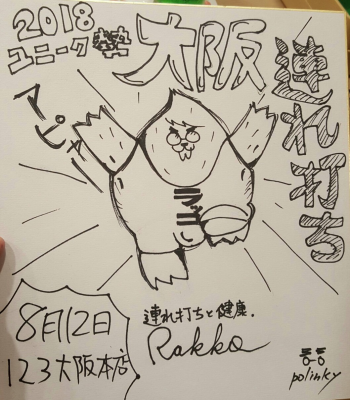 2018
ユニーク勢
大阪
連れ打ち
マピャー
ラッコ
8月12日
123大阪本店
連れ打ちと健康.
Rakko
polinky